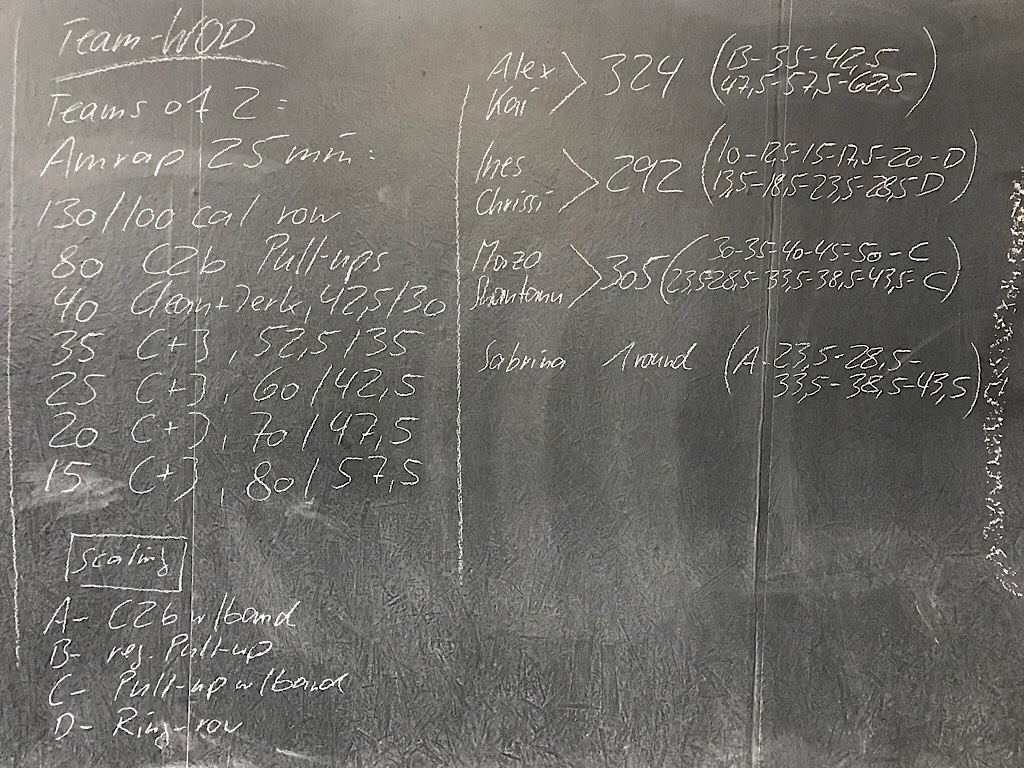 Team-WOD
Teams of 2:
Amrap 25 min:
130/100 cal row
80 C2b Pull-ups
40 Clean+Jerk, 42,5/30
35 C+J, 52,5/35
25 C+J, 60/42,5
20 C+J, 70/47,5
15 C+J, 80/57,5
Scaling
A- C2b w/band
B- reg. Pull-up
C- Pull-up w/band
D- Ring-row
Alex
Kai
324
(B-35-42,5
47,5-57,5-62,5)
Ines
Chrissi
292
(10-12,5-15-17,5-20-D
13,5-18,5-23,5-28,5 D)
305
(30-35-40-45-50-C
23,5 28,5-33,5-38,5-43,5-C)
Sabrina 1 round (A-23,5-28,5-
33,5-38,5-43,5)